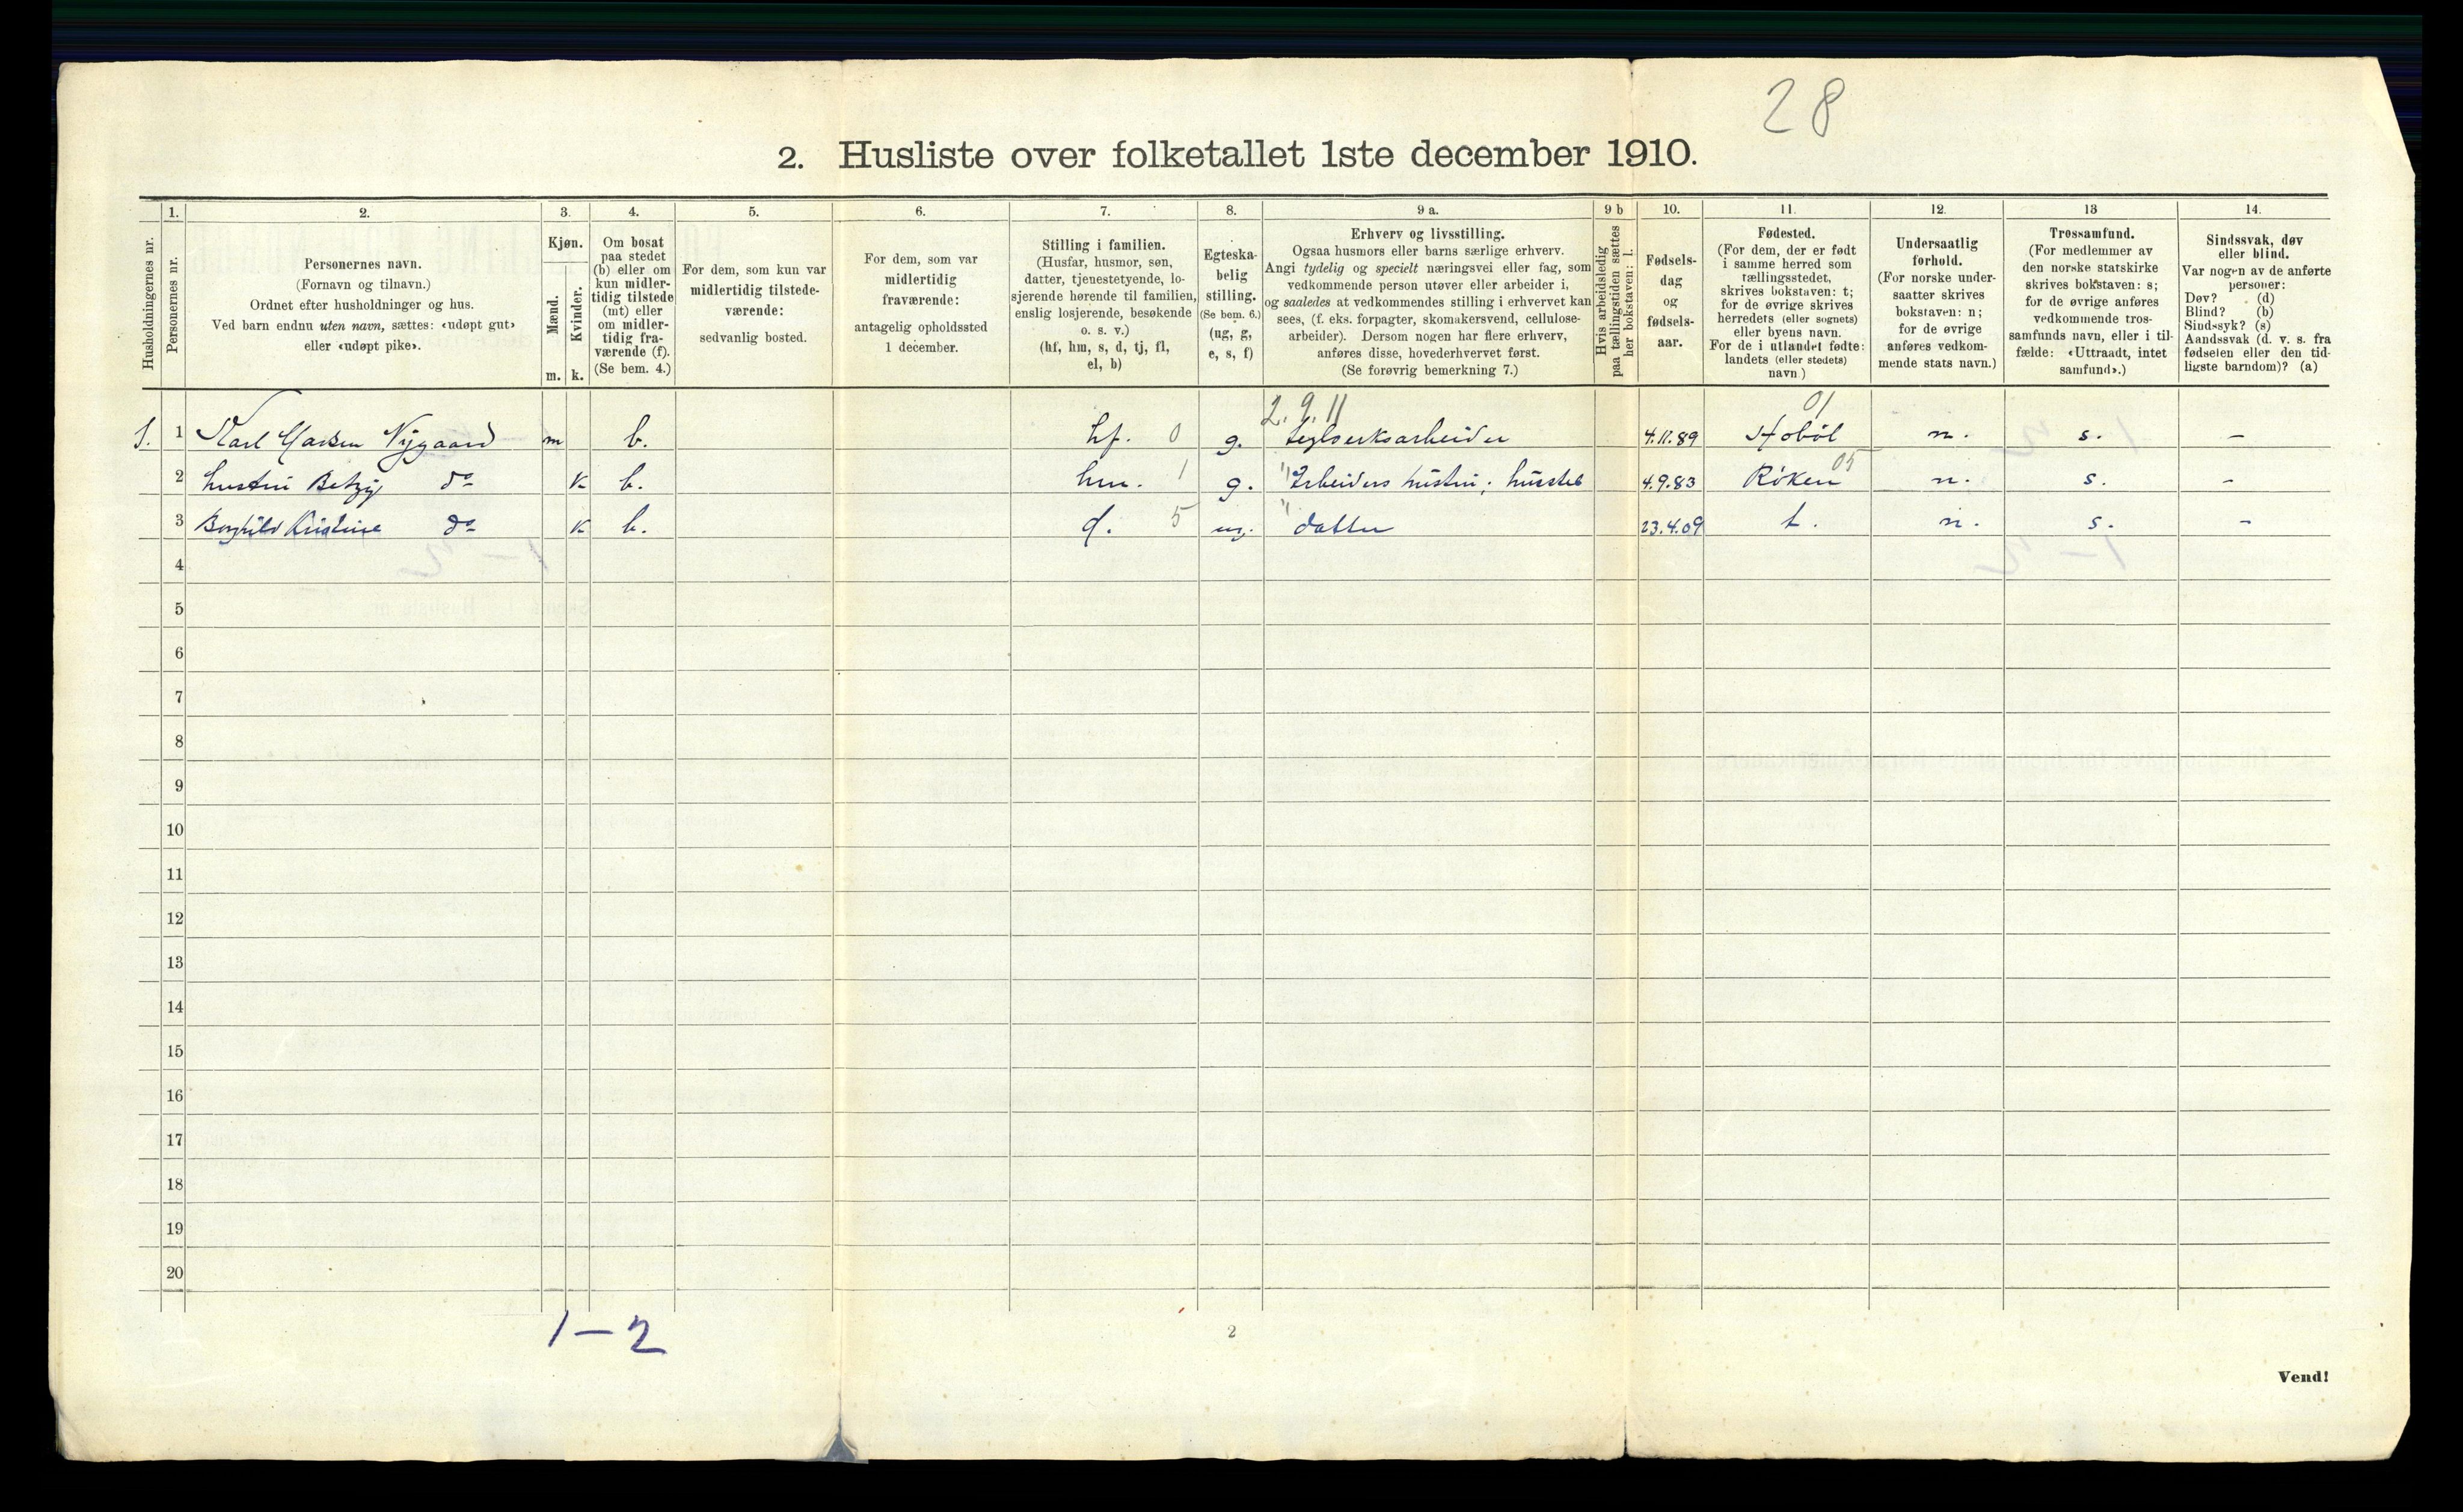 28
2. Husliste over folketallet 1ste december 1910.
Husholdningernes nr.
1.
Personernes nr.
2.
Personernes navn.
(Fornavn og tilnavn.)
Ordnet efter husholdninger og hus.
Ved barn endnu uten navn, sættes: «udøpt gut»
eller «udøpt pike».
3.
Kjøn.
Mænd.
Kvinder.
m. k.
4.
Om bosat
paa stedet
(b) eller om
kun midler-
tidig tilstede
(mt) eller
om midler-
tidig fra-
værende (f).
(Se bem. 4.)
5.
For dem, som kun var
midlertidig tilstede-
værende:
sedvanlig bosted.
6.
For dem, som var
midlertidig
fraværende:
antagelig opholdssted
1 december.
7.
Stilling i familien.
(Husfar, husmor, søn,
datter, tjenestetyende, lo-
sjerende hørende til familien,
enslig losjerende, besøkende
o. s. v.)
(hf, hm, s, d, tj, fl,
el, b)
8.
Egteska-
belig
stilling.
(Se bem. 6.)
(ug, g,
e, s, f)
9 a.
Erhverv og livsstilling.
Ogsaa husmors eller barns særlige erhverv.
Angi tydelig og specielt næringsvei eller fag, som
vedkommende person utøver eller arbeider i,
og saaledes at vedkommendes stilling i erhvervet kan
sees, (f. eks. forpagter, skomakersvend, cellulose-
arbeider). Dersom nogen har flere erhverv,
anføres disse, hovederhvervet først.
(Se forøvrig bemerkning 7.)
9 b
Hvis arbeidsledig
paa tællingstiden sættes
her bokstaven: l.
10.
Fødsels-
dag
og
fødsels-
aar.
11.
Fødested.
(For dem, der er født
i samme herred som
tællingsstedet,
skrives bokstaven: t;
for de øvrige skrives
herredets (eller sognets)
eller byens navn.
For de i utlandet fødte:
landets (eller stedets)
navn.)
12.
Undersaatlig
forhold.
(For norske under-
saatter skrives
bokstaven: n;
for de øvrige
anføres vedkom-
mende stats navn.)
13
Trossamfund.
(For medlemmer av
den norske statskirke
skrives bokstaven: s;
for de øvrige anføres
vedkommende tros-
samfunds navn, eller i til-
fælde: «Uttraadt, intet
samfund».)
14.
Sindssvak, døv
eller blind.
Var nogen av de anførte
personer:
Døv? (d)
Blind? (b)
Sindssyk? (s)
Aandssvak (d. v. s. fra
fødselen eller den tid-
ligste barndom)? (a)
2.9.11 01
1. 1 Karl Nygaard m b. hf. 0 g. teglverksarbeider 4.11.89 Hobøl n. s. –
2 hustru Betzy do k b. hm. 1 g. " Arbeiders hustru; husstel 4.9.83 Røken 05 n. s. –
3 Borghild Kristine do k b. d. 5 ug. " datter 23.4.09 t. n. s. –
4
5
6
7
8
9
10
11
12
13
14
15
16
17
18
19
20
1 – 2
2
Vend!